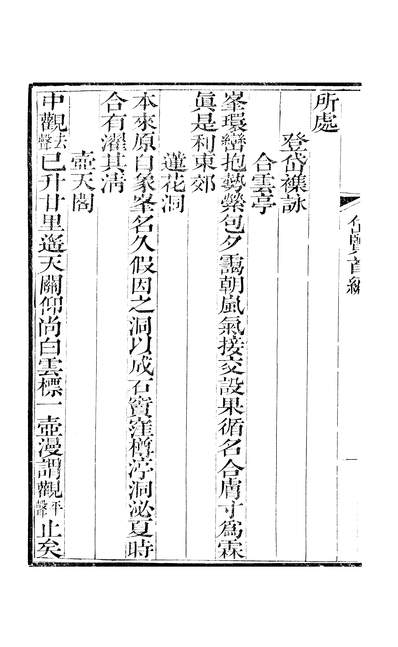 所處
登岱襍詠
合雲亭
峯環巒抱勢縈包夕靄朝嵐氣接交設果循名合膚寸爲霖
眞是利東郊
蓮花洞
本來原自象峯名久假因之洞以成石竇窪樽渟洞泌夏時
合有濯其淸
壺天閣
中觀去聲已升廿里遙天關仰尚白雲標一壺漫謂觀平聲止矣
岱覽首編